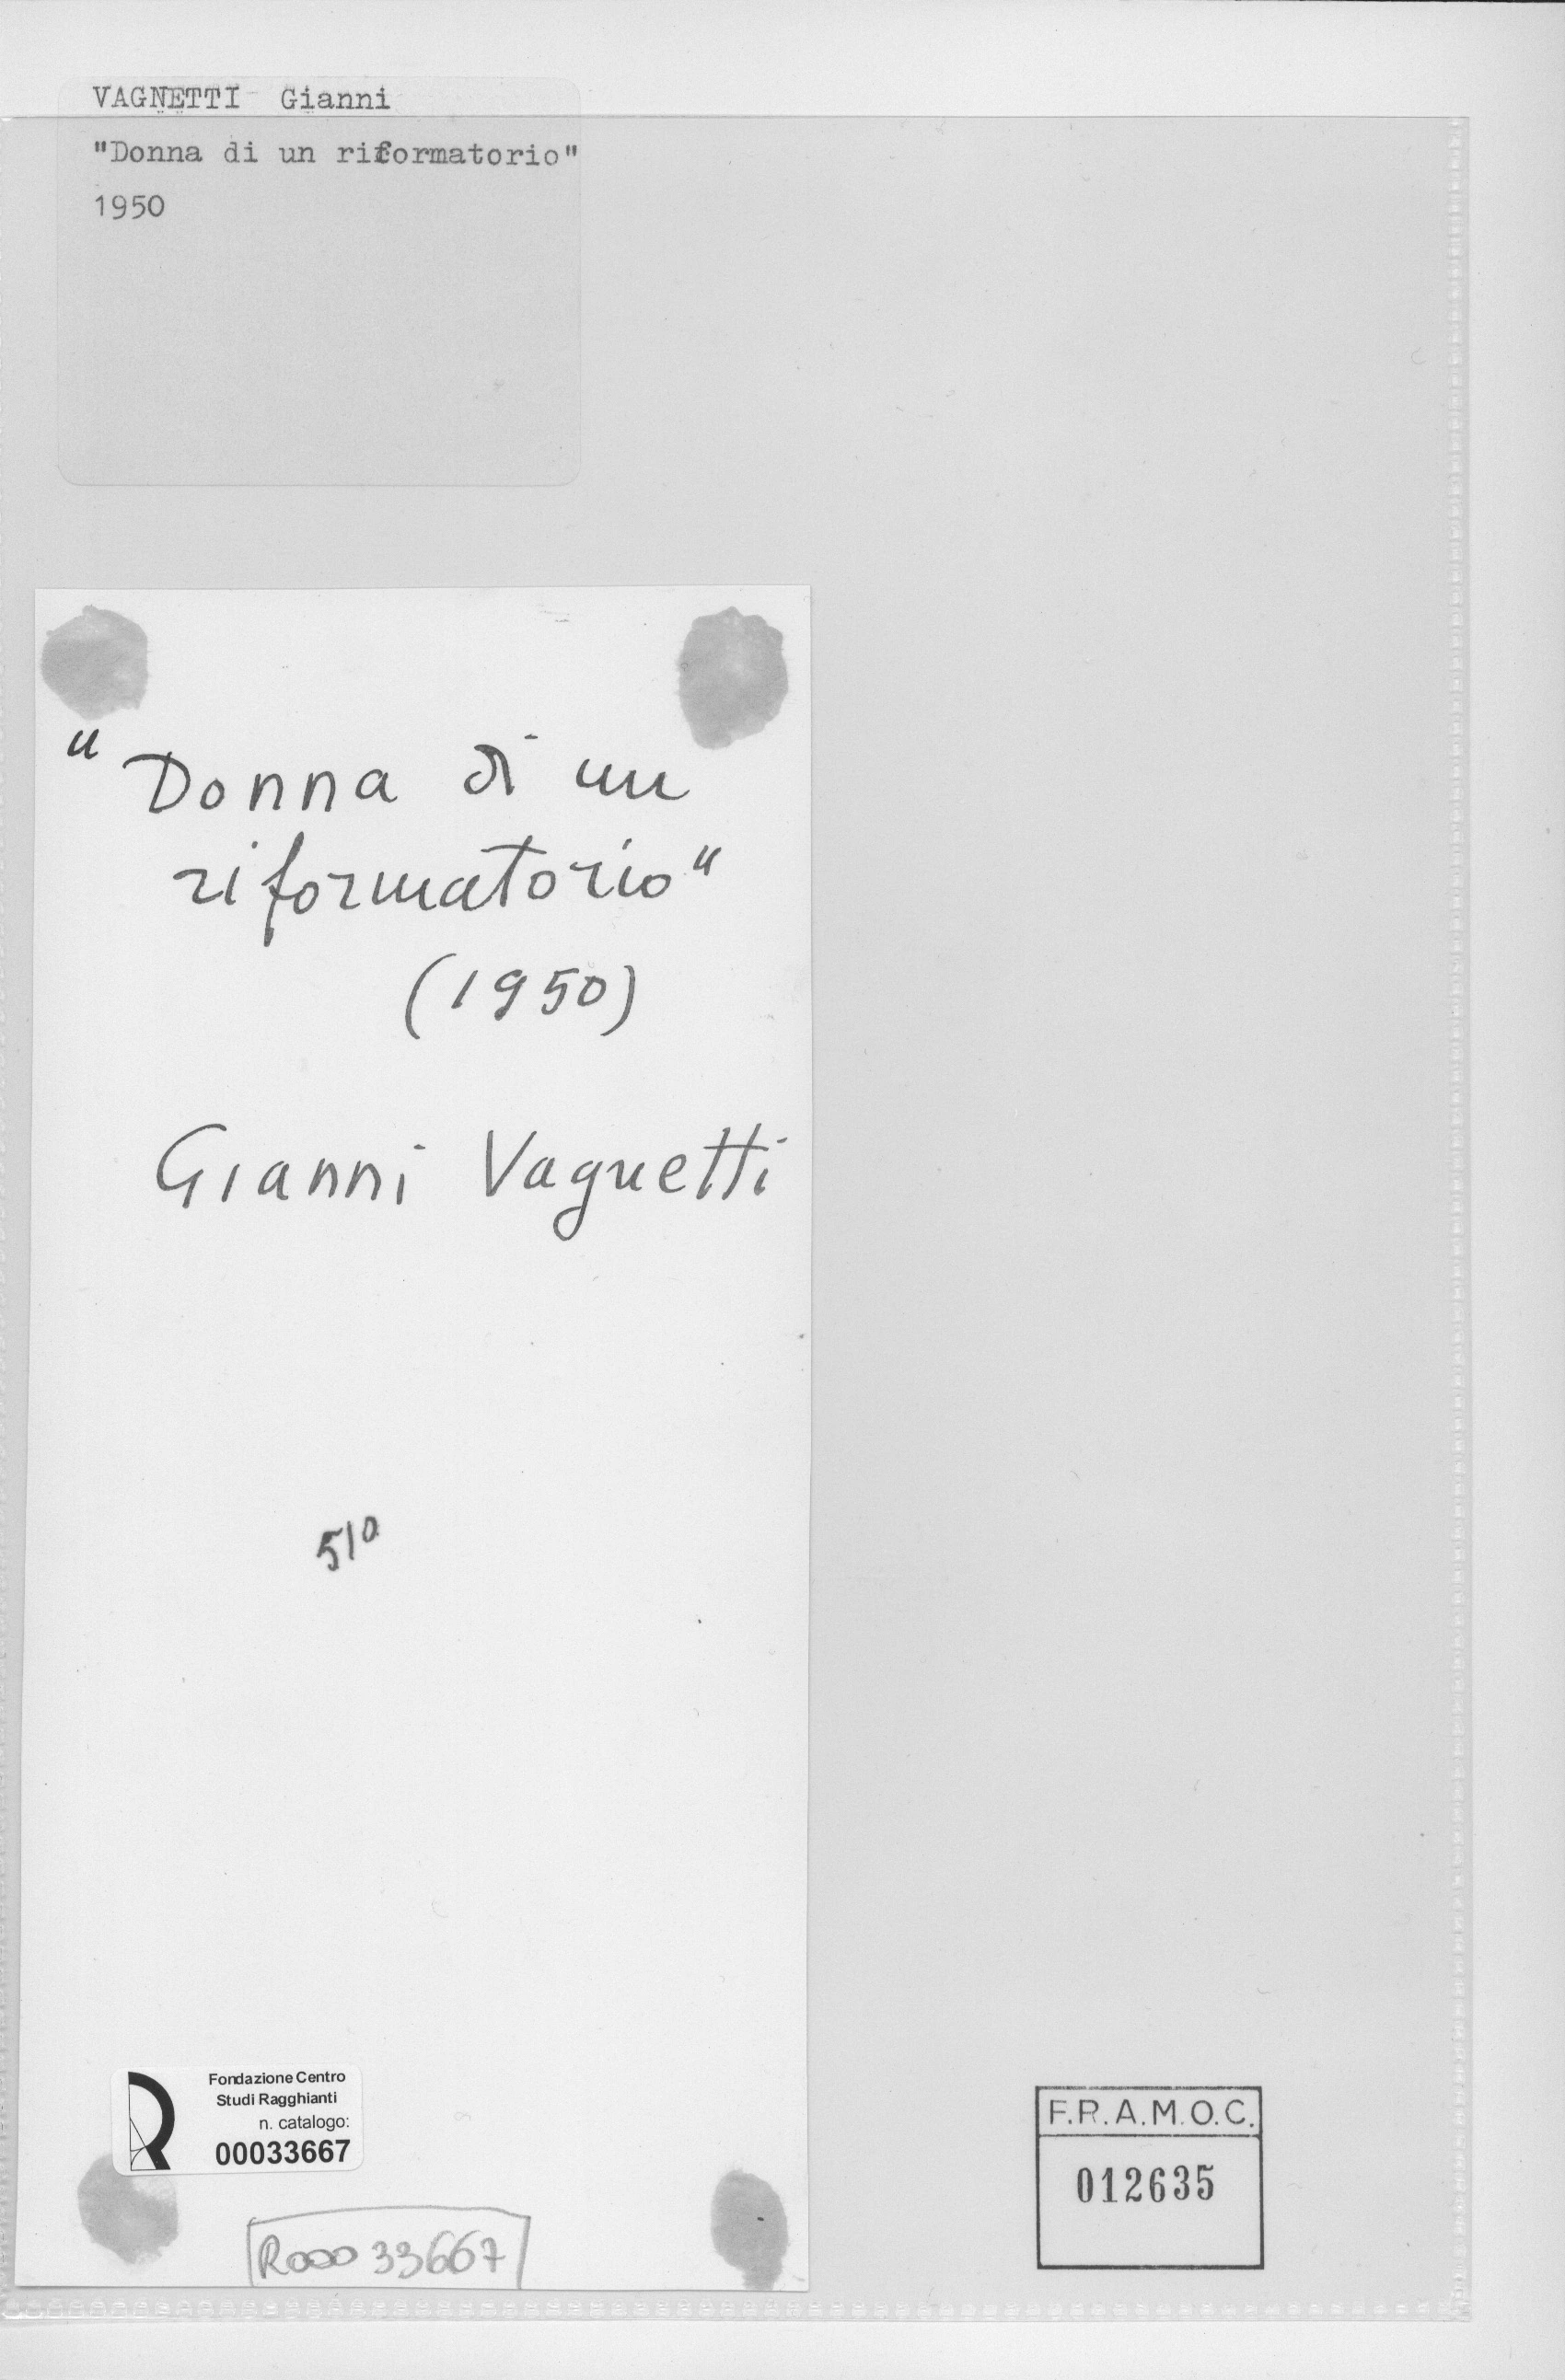 VAGNETTI Gianni
"Donna di un riformatorio"
1950
"Donna di un
riformatorio"
(1950)
Gianni Vagnetti
510
Fondazione Centro
Studi Ragghianti
n. catalogo:
00033667
R00033667
F.R.A.M.O.C.
012635